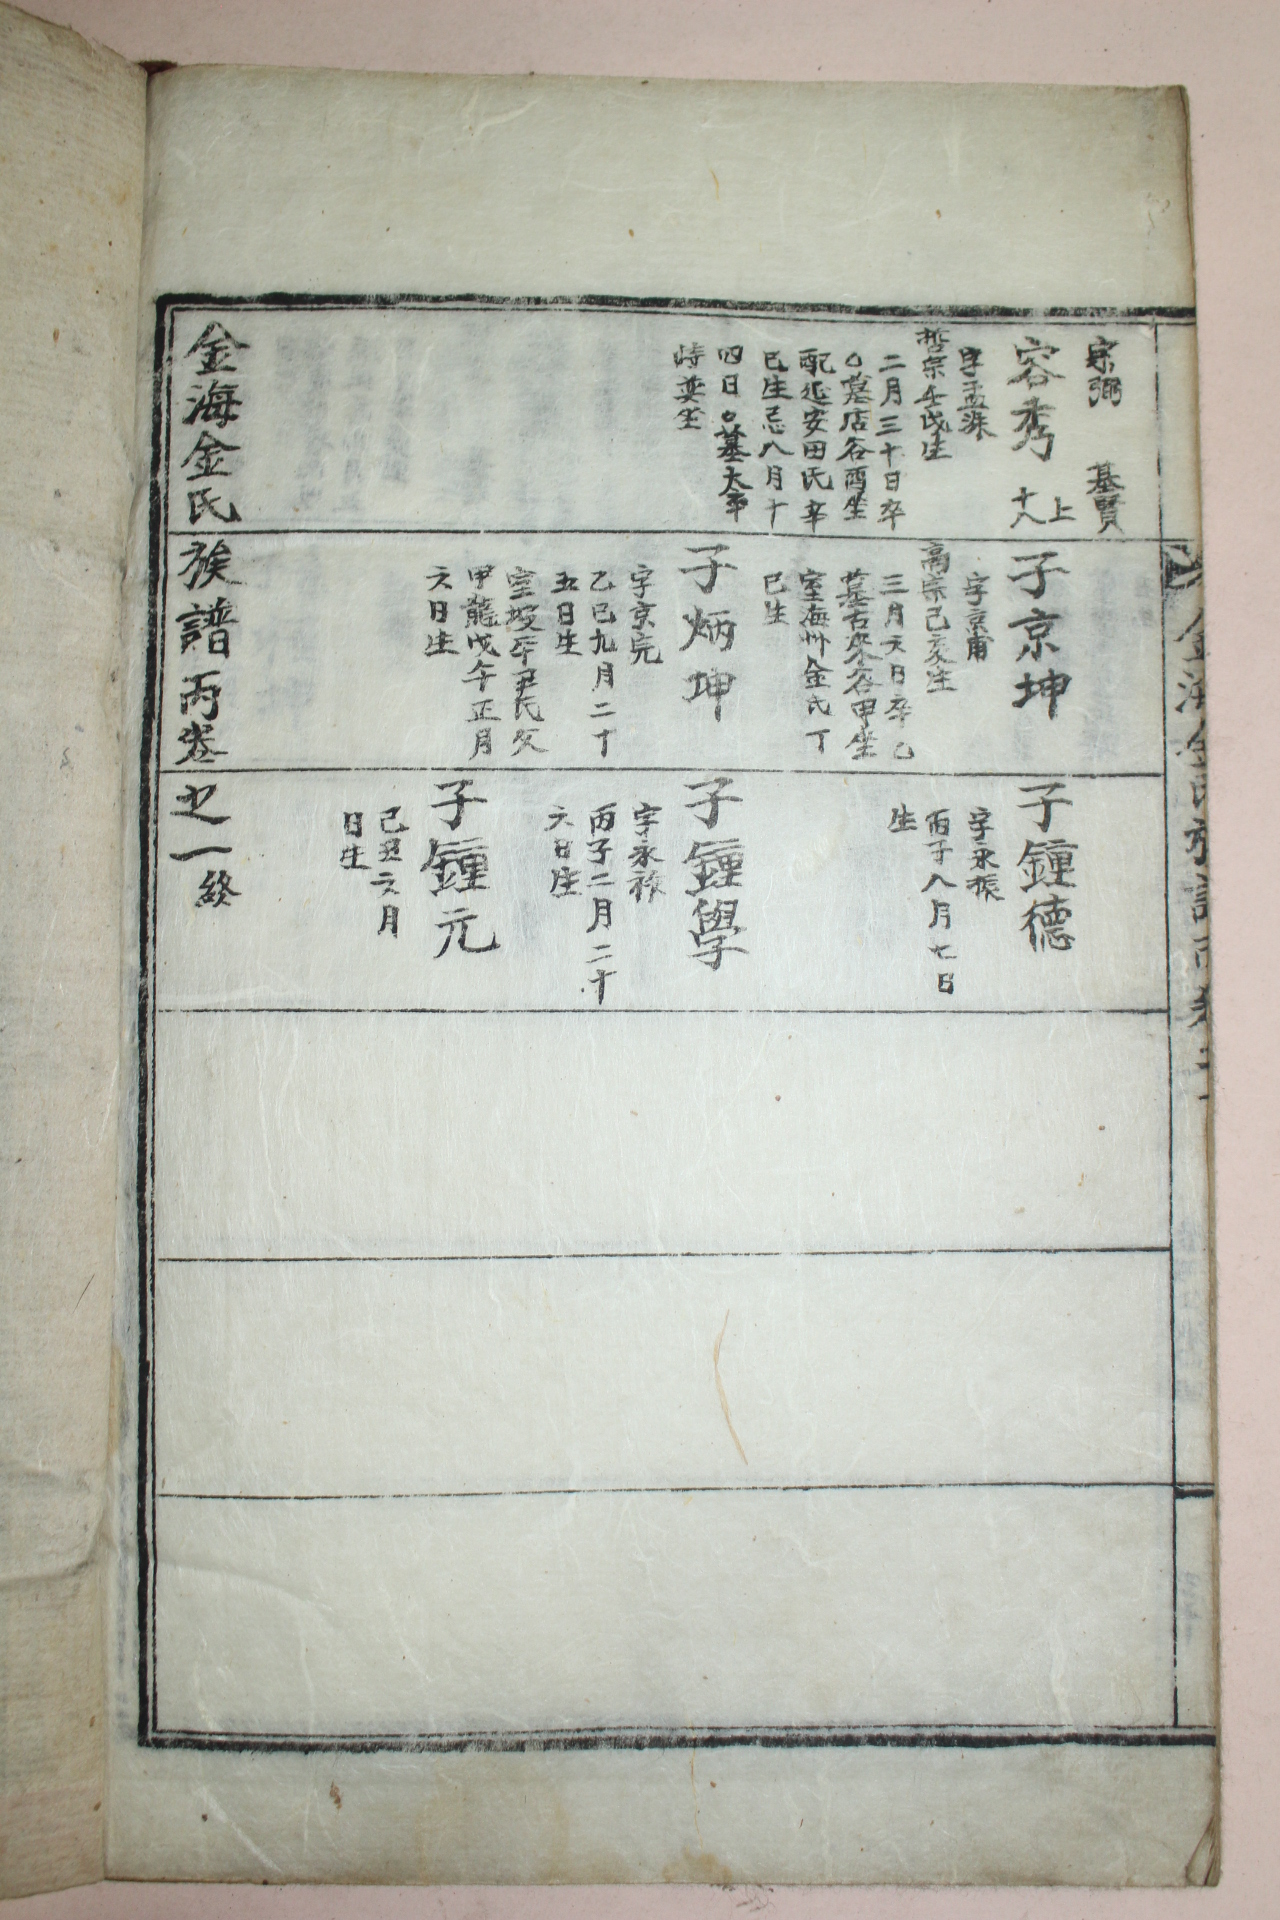 宗弼 基賢
容秀 十八 上
字孟洙
哲宗壬戌生
二月三十日卒
○墓店谷酉坐
配延安田氏辛
巳生忌八月十
四日○墓太平
峙艮坐
子京坤
字京甫
高宗己亥生
三月六日卒乙
墓右谷甲坐
室海州金氏丁
巳生
子炳坤
字京完
乙巳九月二丁
五日生
室坡平尹氏父
甲龍戊午正月
六日生
子鐘德
字永振
丙子八月七日
生
子鐘學
字永禄
丙子二月二十
六日生
子鐘元
己丑六月
日生
金海金氏族譜丙卷之一終
金海金氏族譜丙卷之一